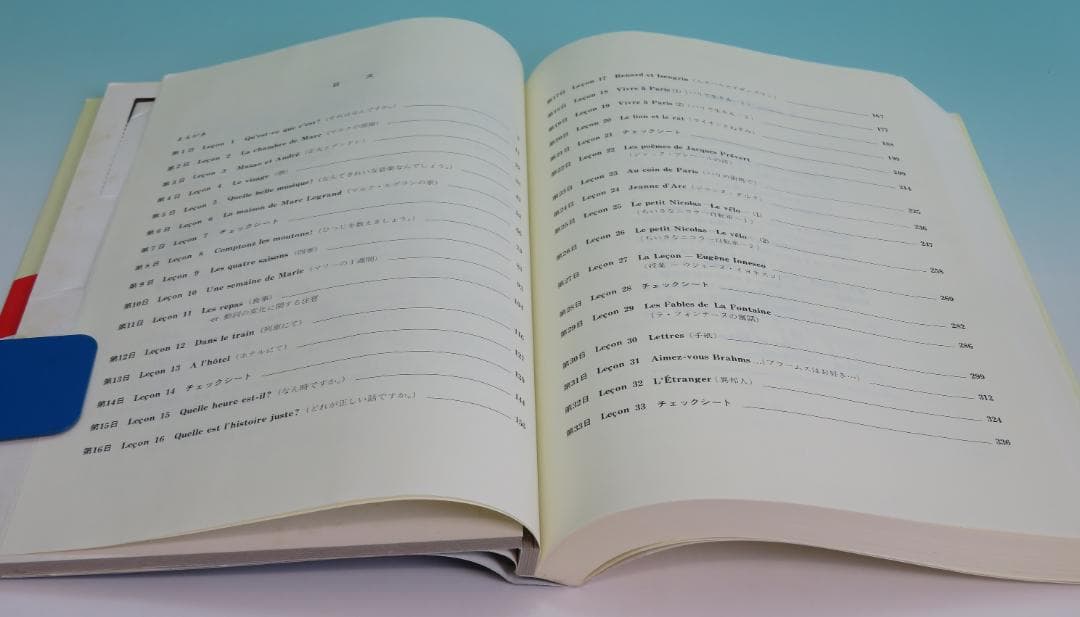 目次
まえがき
第1日 Leçon 1 Qu'est-ce que c'est?（それはなんですか。）
第2日 Leçon 2 La chambre de Marc（マルクの部屋）
第3日 Leçon 3 Masao et André（正夫とアンドレ）
第4日 Leçon 4 Le visage（顔）
第5日 Leçon 5 Quelle belle musique!（なんてきれいな音楽なんでしょう。）
第6日 Leçon 6 La maison de Marc Legrand（マルク・ルグランの家）
第7日 Leçon 7 チェックシート
第8日 Leçon 8 Comptons les moutons!（ひつじを数えましょう。）
第9日 Leçon 9 Les quatre saisons（四季）
第10日 Leçon 10 Une semaine de Marie（マリーの1週間）
第11日 Leçon 11 Les repas（食事）
er 動詞の変化に関する注意
第12日 Leçon 12 Dans le train（列車にて） 116
第13日 Leçon 13 A l'hôtel（ホテルにて）
第14日 Leçon 14 チェックシート
第15日 Leçon 15 Quelle heure est-il?（なん時ですか。） 144
第16日 Leçon 16 Quelle est l'histoire juste?（どれが正しい話ですか。）
第17日 Leçon 17 Renard et Isengrin 167
第18日 Leçon 18 Vivre à Paris (1)（パリで生きる—1） 177
第19日 Leçon 19 Vivre à Paris (2)（パリで生きる—2） 188
第20日 Leçon 20 Le lion et le rat（ライオンとねずみ） 199
第21日 Leçon 21 チェックシート 209
第22日 Leçon 22 Les poèmes de Jacques Prévert 214
（ジャック・プレヴェールの詩）
第23日 Leçon 23 Au coin de Paris（パリの街角で） 225
第24日 Leçon 24 Jeanne d'Arc（ジャンヌ・ダルク） 236
第25日 Leçon 25 Le petit Nicolas—Le vélo—(1) 247
（ちいさなニコラ—自転車—1）
第26日 Leçon 26 Le petit Nicolas—Le vélo—(2) 258
（ちいさなニコラ—自転車—2）
第27日 Leçon 27 La Leçon — Eugène Ionesco 269
（授業 — ウジェーヌ・イヨネスコ）
第28日 Leçon 28 チェックシート 282
第29日 Leçon 29 Les Fables de La Fontaine 286
（ラ・フォンテーヌの寓話）
第30日 Leçon 30 Lettres（手紙） 299
第31日 Leçon 31 Aimez-vous Brahms ...（ブラームスはお好き…） 312
第32日 Leçon 32 L'Étranger（異邦人） 324
第33日 Leçon 33 チェックシート 336